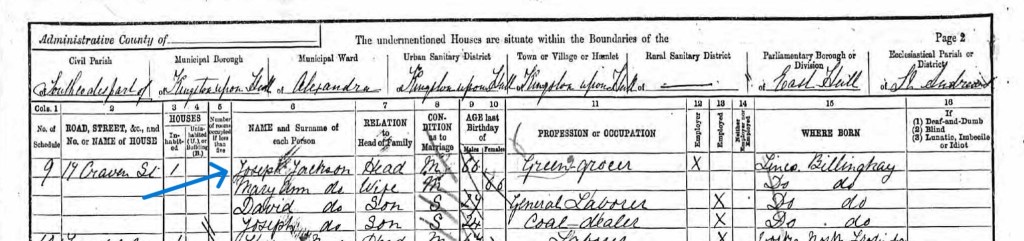 Administrative County of
The undermentioned Houses are situate within the Boundaries of the
Page 2
Civil Parish
Municipal Borough
Municipal Ward
Urban Sanitary District
Town or Village or Hamlet
Rural Sanitary District
Parliamentary Borough or Division
Ecclesiastical Parish or District
of Southcoates part of
of Kingston upon Hull
of Alexandra
of Kingston upon Hull
of Kingston upon Hull
of
of East Hull
of St Andrews
Cols. 1 2 3 4 5 6 7 8 9 10 11 12 13 14 15 16
No. of Schedule
ROAD, STREET, &c., and No. or NAME of HOUSE
HOUSES
In-habit-ed
Unin-habited (U.) or Building (B.)
Number of rooms occupied if less than five
NAME and Surname of each Person
RELATION to Head of Family
CON-DITION as to Marriage
AGE last Birthday of
Males Females
PROFESSION or OCCUPATION
Employer
Employed
Neither Employer nor Employed
WHERE BORN
If
(1) Deaf-and-Dumb
(2) Blind
(3) Lunatic, Imbecile or Idiot
9 17 Craven St 1 Joseph Jackson Head M 66 Green grocer X Lincs. Billinghay
Mary Ann do Wife M 66 Do do
David do Son S 29 General Laborer X Do do
Joseph do Son S 24 Coal dealer X Do do
Head M Laborer X